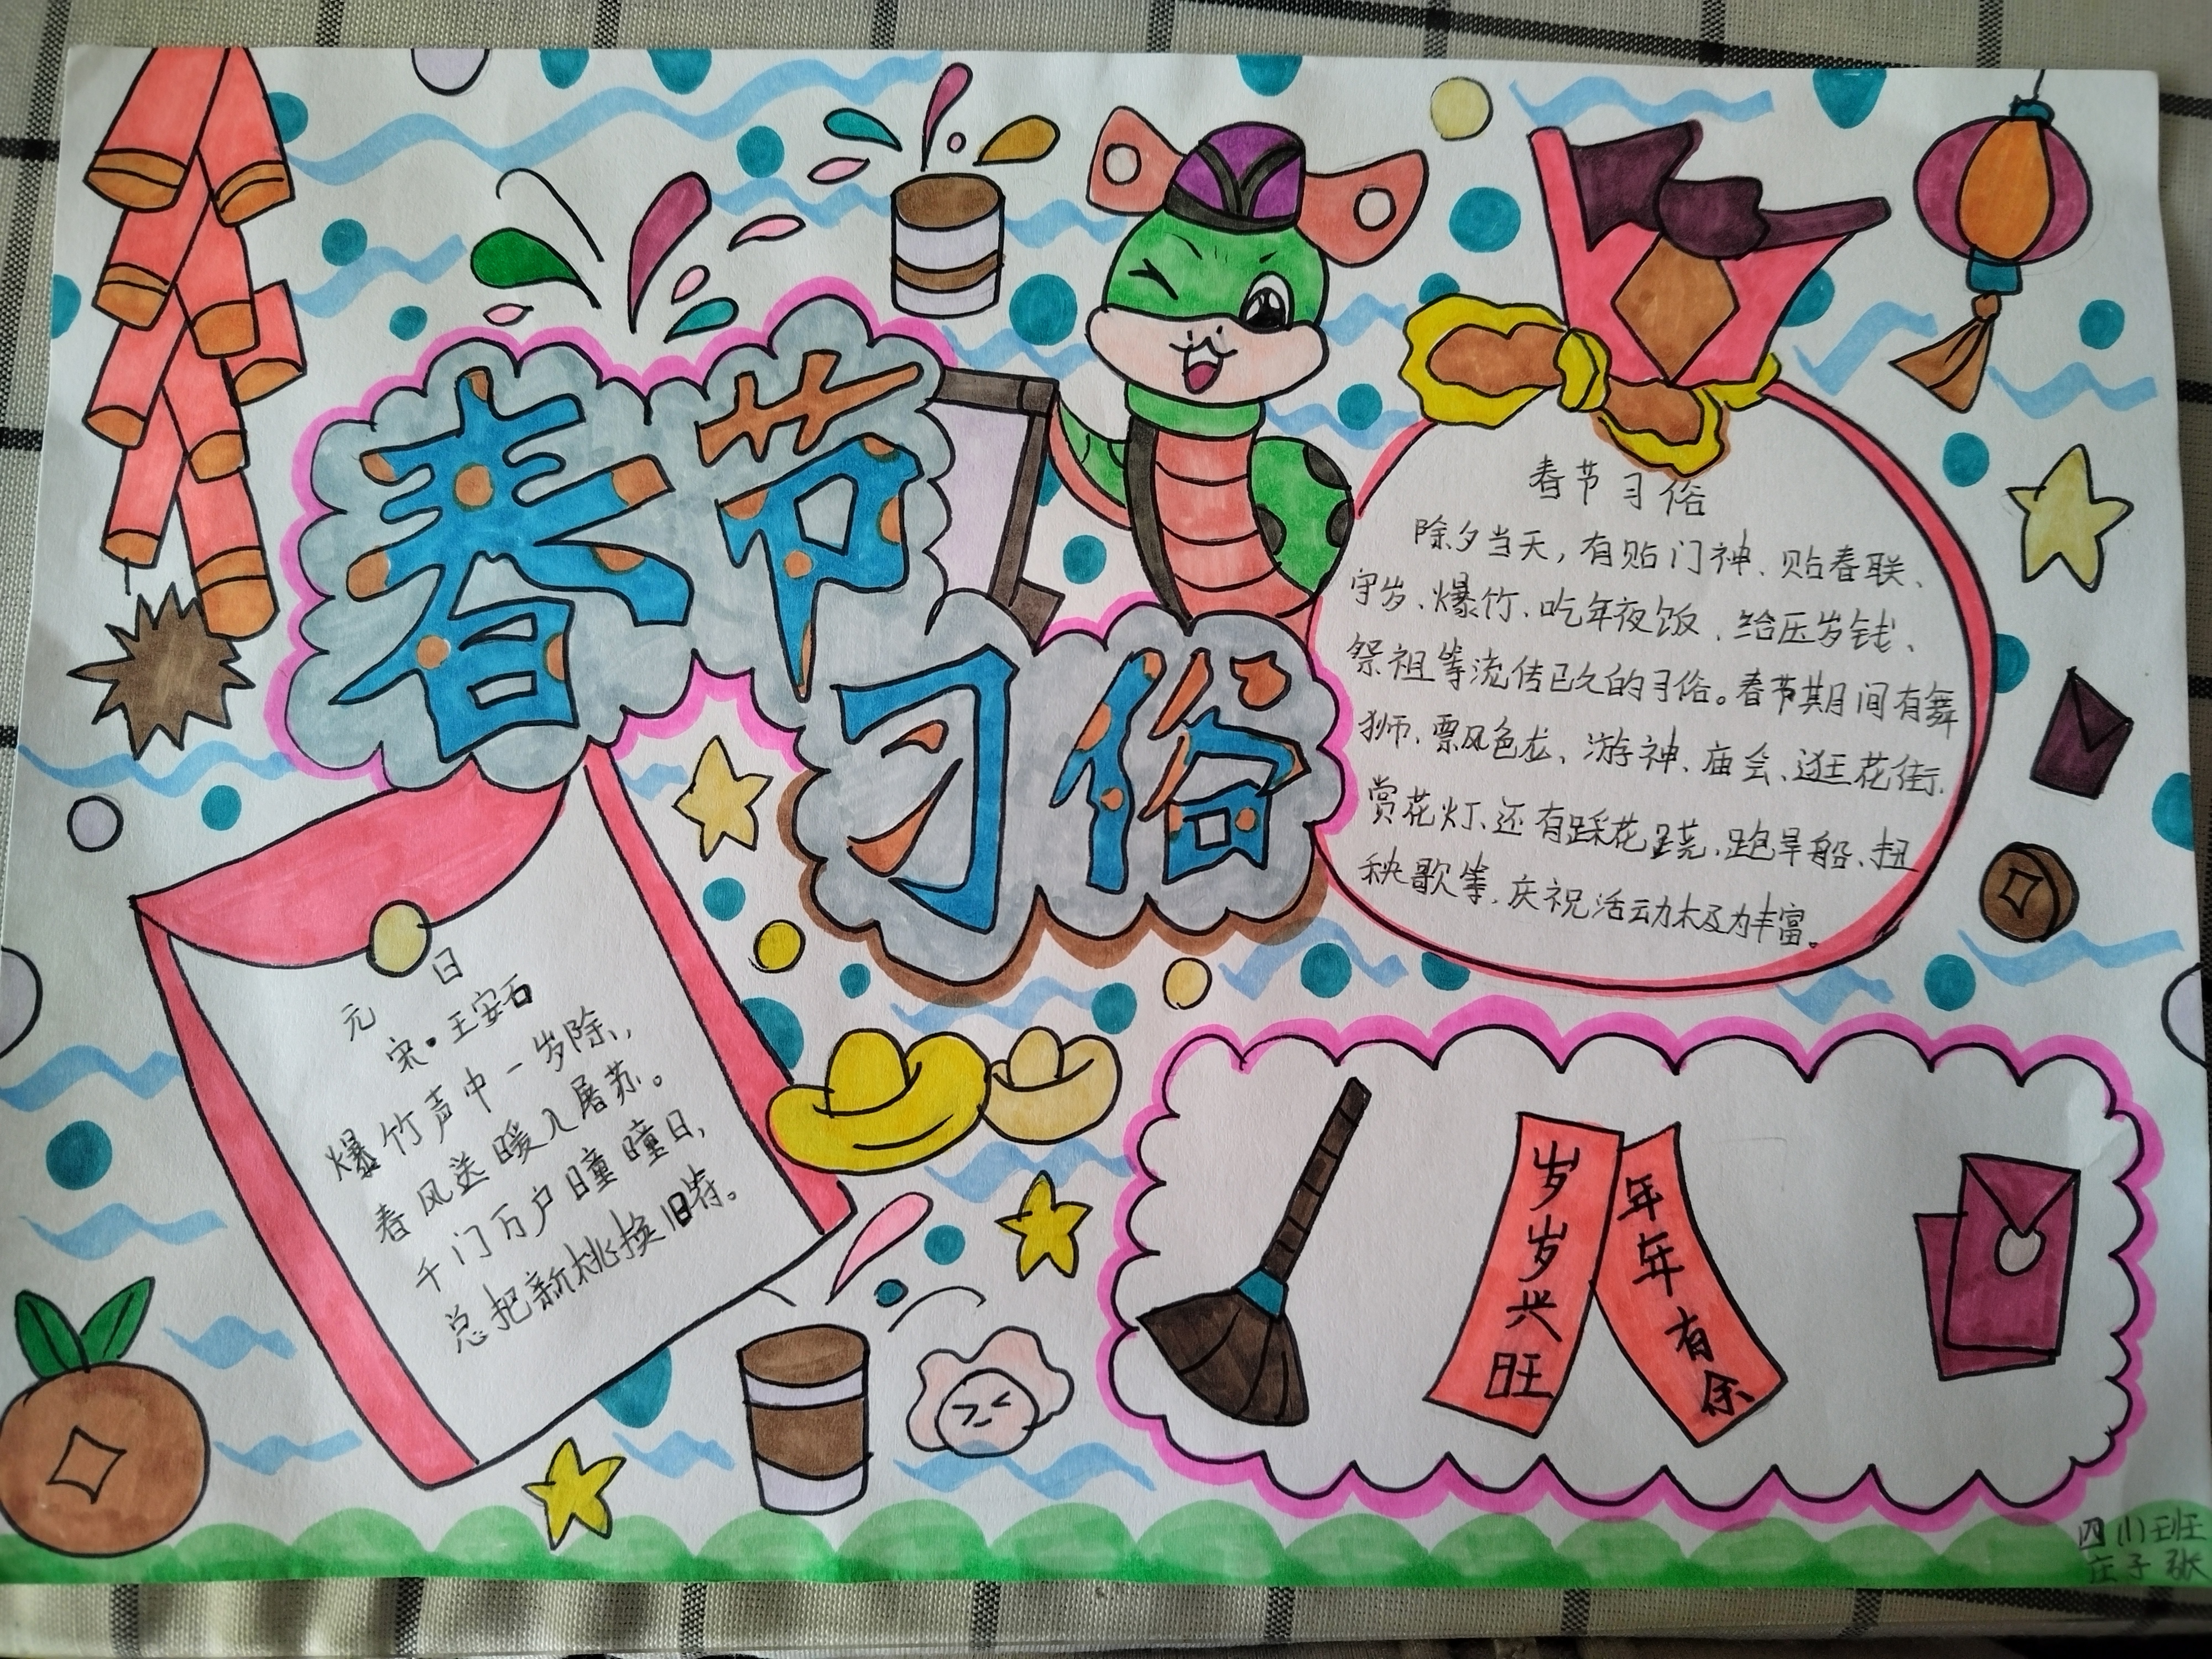 春节
习俗
春节习俗
除夕当天，有贴门神、贴春联、
守岁、爆竹、吃年夜饭、给压岁钱、
祭祖等流传已久的习俗。春节期间有舞
狮、飘色、游神、庙会、逛花街、
赏花灯、还有踩花跷、跑旱船、扭
秧歌等，庆祝活动极为丰富。
元日
宋·王安石
爆竹声中一岁除，
春风送暖入屠苏。
千门万户曈曈日，
总把新桃换旧符。
岁岁兴旺
年年有余
四(1)班
庄子张